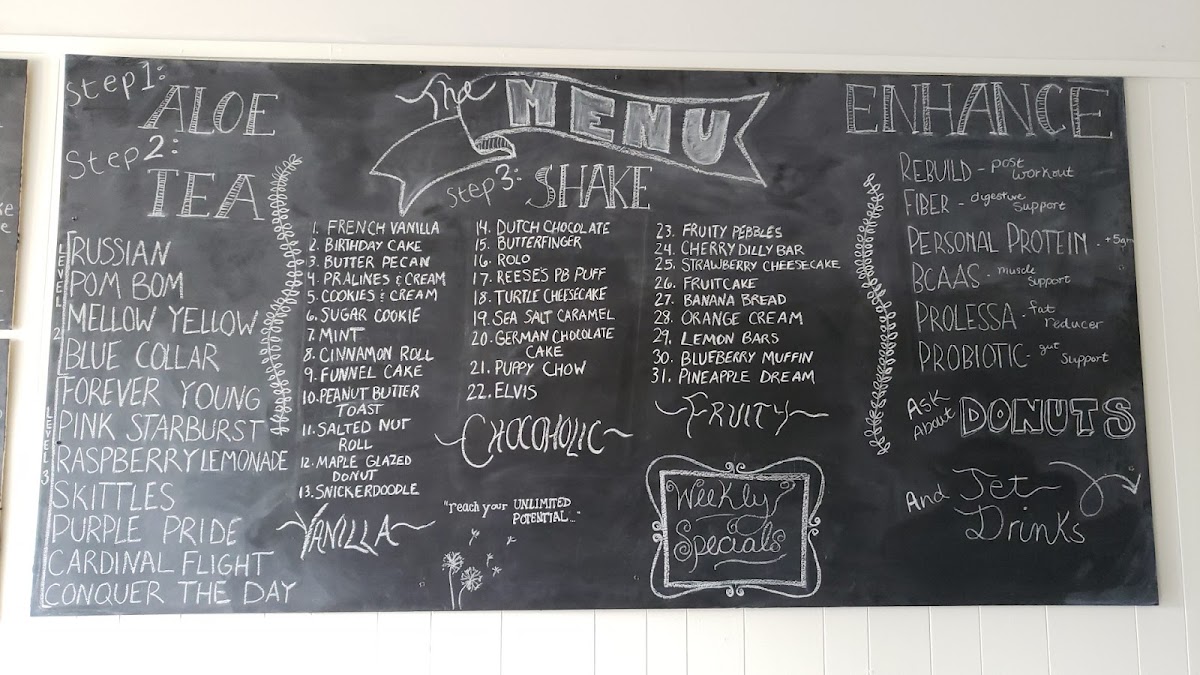 Step 1:
ALOE
Step 2:
TEA
LEVEL 2
RUSSIAN
POM BOM
MELLOW YELLOW
BLUE COLLAR
FOREVER YOUNG
LEVEL 3
PINK STARBURST
RASPBERRY LEMONADE
SKITTLES
PURPLE PRIDE
CARDINAL FLIGHT
CONQUER THE DAY
The MENU
Step 3: SHAKE
1. FRENCH VANILLA
2. BIRTHDAY CAKE
3. BUTTER PECAN
4. PRALINES & CREAM
5. COOKIES & CREAM
6. SUGAR COOKIE
7. MINT
8. CINNAMON ROLL
9. FUNNEL CAKE
10. PEANUT BUTTER
TOAST
11. SALTED NUT
ROLL
12. MAPLE GLAZED
DONUT
13. SNICKERDOODLE
VANILLA
14. DUTCH CHOCOLATE
15. BUTTERFINGER
16. ROLO
17. REESE'S PB PUFF
18. TURTLE CHEESECAKE
19. SEA SALT CARAMEL
20. GERMAN CHOCOLATE
CAKE
21. PUPPY CHOW
22. ELVIS
CHOCOHOLIC
"reach your UNLIMITED
POTENTIAL..."
23. FRUITY PEBBLES
24. CHERRY DILLY BAR
25. STRAWBERRY CHEESECAKE
26. FRUITCAKE
27. BANANA BREAD
28. ORANGE CREAM
29. LEMON BARS
30. BLUEBERRY MUFFIN
31. PINEAPPLE DREAM
FRUITY
Weekly
Specials
ENHANCE
REBUILD - post
workout
FIBER - digestive
support
PERSONAL PROTEIN - +5gm
BCAAS - muscle
support
PROLESSA - fat
reducer
PROBIOTIC - gut
support
Ask
About DONUTS
And Jet
Drinks